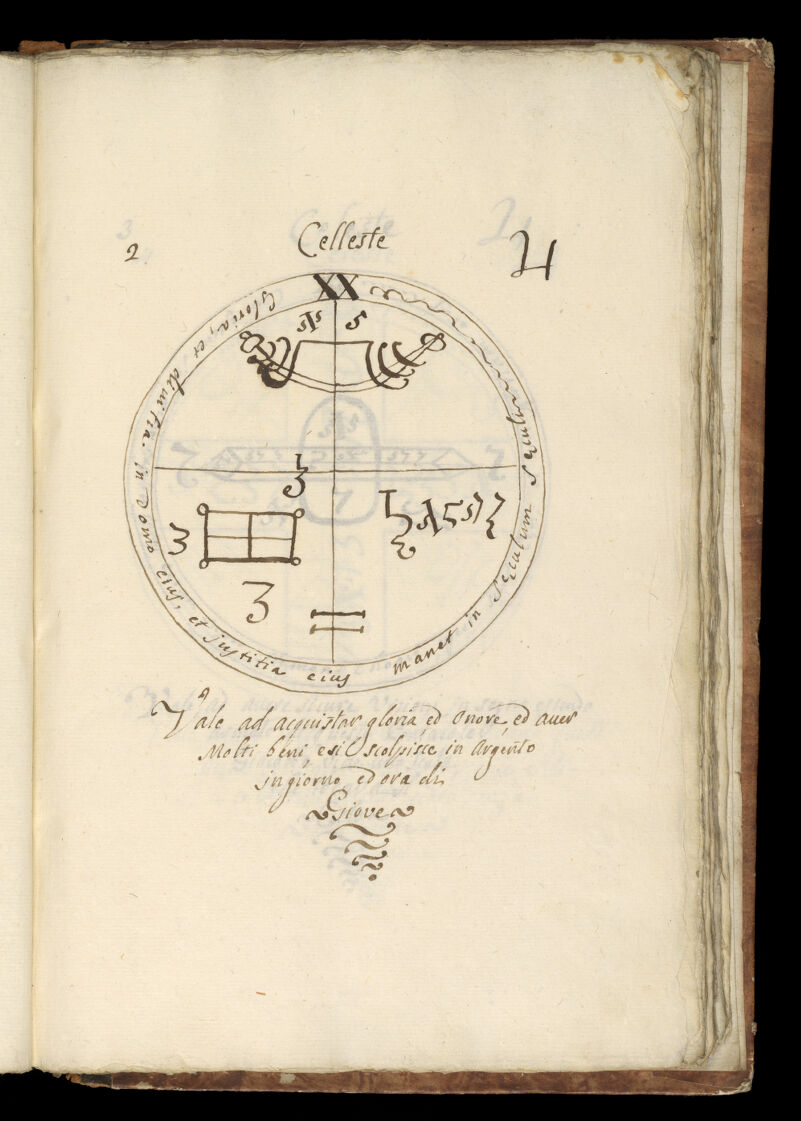 2
Celleste
♃
Gloria, et diuitia in Domo eius, et justitia eius manet in Seculum Seculi
XX
5
3
3
3
Vale ad acquistar gloria ed onore, ed auer
Molti beni e si scolpisce in Argento
in giorno, ed ora di
Giove